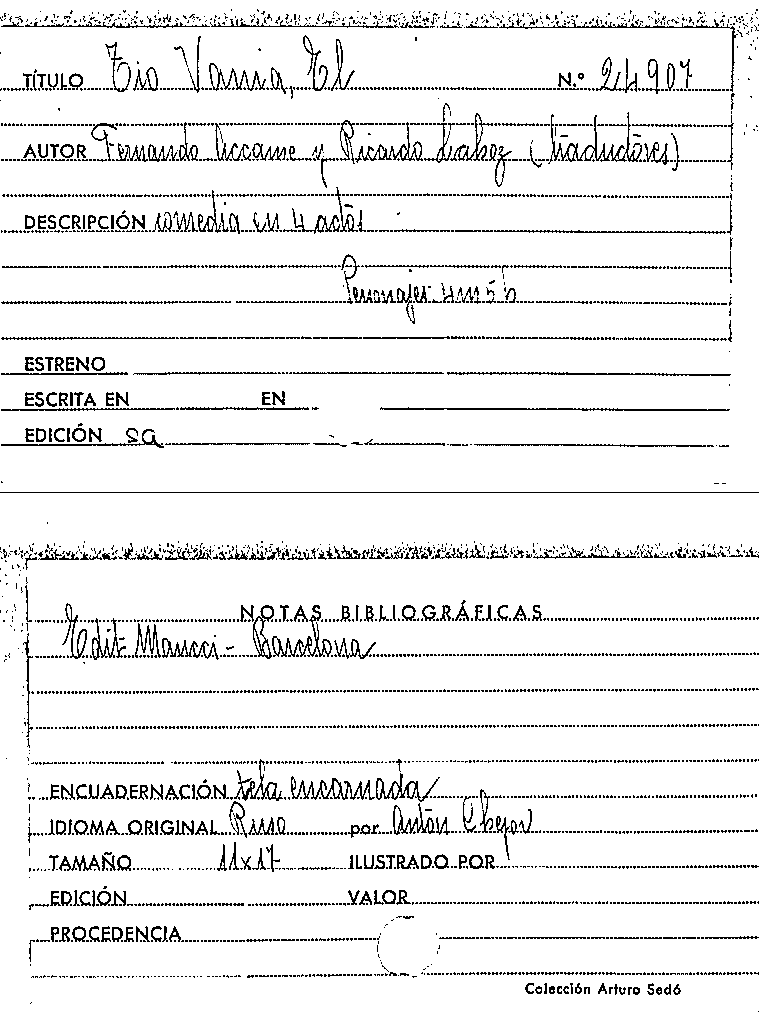 TÍTULO Tio Vania, El N.º 24907
AUTOR Fernando Accame y Ricardo Laboz (traductores)
DESCRIPCIÓN comedia en 4 actos
Personajes: 4m 5h
ESTRENO
ESCRITA EN EN
EDICIÓN sa
NOTAS BIBLIOGRÁFICAS
Edit Maucci - Barcelona
ENCUADERNACIÓN tela encarnada
IDIOMA ORIGINAL Ruso por Antón Chejov
TAMAÑO 11x17 ILUSTRADO POR
EDICIÓN VALOR
PROCEDENCIA
Colección Arturo Sedó